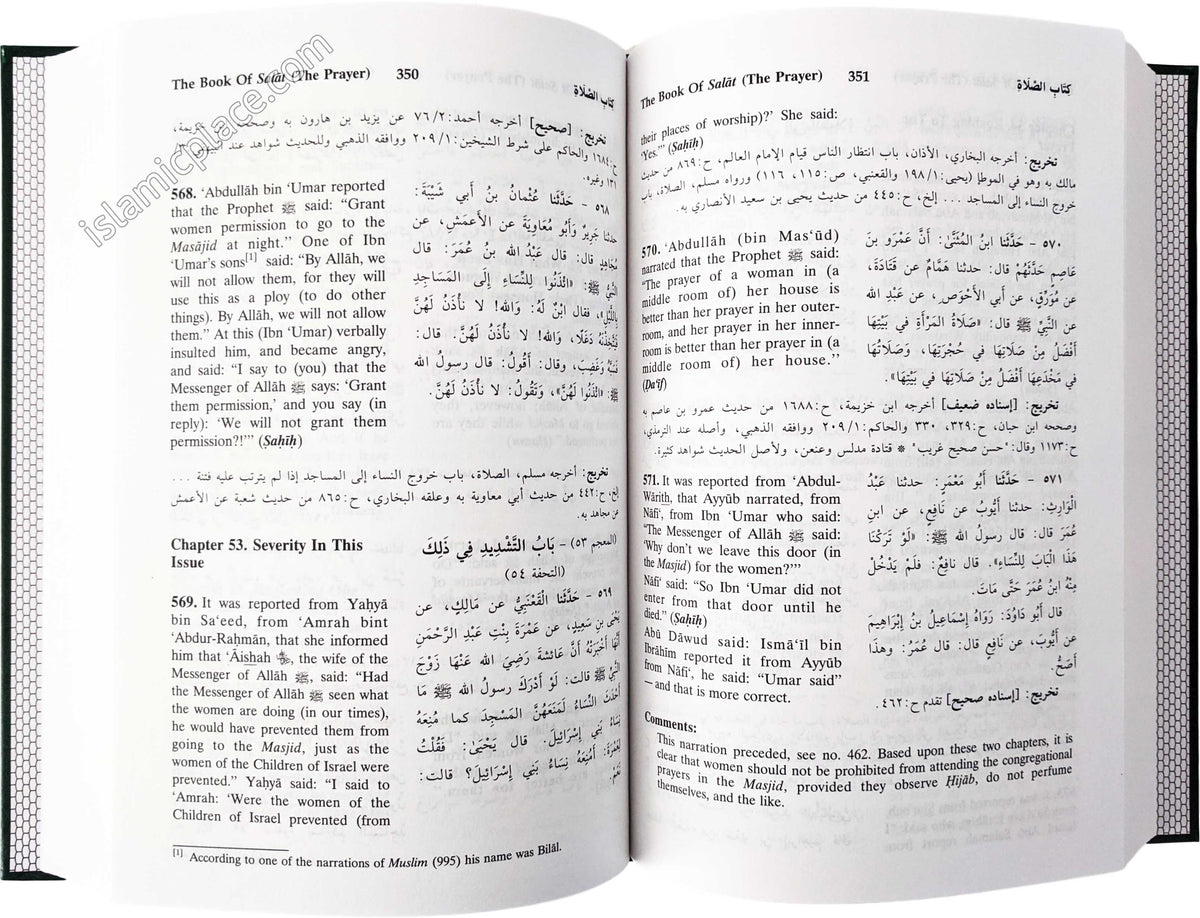 islamicplace.com
The Book Of Salāt (The Prayer) 350
كتاب الصلاة
تخريج: [صحيح] أخرجه أحمد: ٧٦/٢ عن يزيد بن هارون به وصححه ابن خزيمة،
ح: ١٦٨٤ والحاكم على شرط الشيخين: ٢٠٩/١ ووافقه الذهبي وللحديث شواهد عند البيهقي ٣/
١٣١ وغيره.
568. ‘Abdullāh bin ‘Umar reported
that the Prophet ﷺ said: “Grant
women permission to go to the
Masājid at night.” One of Ibn
‘Umar's sons[1] said: “By Allāh, we
will not allow them, for they will
use this as a ploy (to do other
things). By Allāh, we will not allow
them.” At this (Ibn ‘Umar) verbally
insulted him, and became angry,
and said: “I say to (you) that the
Messenger of Allāh ﷺ says: ‘Grant
them permission,’ and you say (in
reply): ‘We will not grant them
permission?!’” (Ṣaḥīḥ)
٥٦٨ - حَدَّثَنا عُثْمانُ بنُ أبي شَيْبَةَ:
حدثنا جَرِيرٌ وَأبُو مُعَاوِيَةَ عن الأعمَشِ، عن
مُجَاهِدٍ قال: قال عَبْدُ الله بنُ عُمَرَ: قال
النَّبيُّ ﷺ: «ائْذَنُوا لِلنِّسَاءِ إلَى المَسَاجِدِ
بِاللَّيْلِ»، فقال ابْنٌ لَهُ: وَالله! لا نَأْذَنُ لَهُنَّ
فَيَتَّخِذْنَهُ دَغَلًا، وَالله! لا نَأْذَنُ لَهُنَّ. قال:
فَسَبَّهُ وَغَضِبَ، وقال: أَقُولُ: قال رسولُ الله
ﷺ: «ائْذَنُوا لَهُنَّ»، وَتَقُولُ: لا نَأْذَنُ لَهُنَّ.
تخريج: أخرجه مسلم، الصلاة، باب خروج النساء إلى المساجد إذا لم يترتب عليه فتنة ...
إلخ، ح: ٤٤٢ من حديث أبي معاوية به وعلقه البخاري، ح: ٨٦٥ من حديث شعبة عن الأعمش
عن مجاهد به.
Chapter 53. Severity In This
Issue
(المعجم ٥٣) - بَابُ التَّشْدِيدِ فِي ذَلِكَ
(التحفة ٥٤)
569. It was reported from Yaḥyā
bin Sa‘eed, from ‘Amrah bint
‘Abdur-Raḥmān, that she informed
him that ‘Āishah, the wife of the
Messenger of Allāh ﷺ, said: “Had
the Messenger of Allāh ﷺ seen what
the women are doing (in our times),
he would have prevented them from
going to the Masjid, just as the
women of the Children of Israel were
prevented.” Yaḥyā said: “I said to
‘Amrah: ‘Were the women of the
Children of Israel prevented (from
٥٦٩ - حَدَّثَنا القَعْنَبِيُّ عن مَالِكٍ، عن
يَحْيَى بنِ سَعِيدٍ، عن عَمْرَةَ بِنْتِ عَبْدِ الرَّحْمَنِ
أنَّها أَخْبَرَتْهُ أنَّ عَائشةَ رَضِيَ الله عَنْهَا زَوْجَ
النَّبيِّ ﷺ قالت: لَوْ أدْرَكَ رسولُ الله ﷺ مَا
أحْدَثَ النِّسَاءُ لَمَنَعَهُنَّ المَسْجِدَ كما مُنِعَهُ
نِسَاءُ بَنِي إِسْرَائِيلَ. قال يَحْيَى: فَقُلْتُ
لِعَمْرَةَ: أَمُنِعَهُ نِسَاءُ بَنِي إِسْرَائِيلَ؟ قالت:
نَعَمْ.
[1] According to one of the narrations of Muslim (995) his name was Bilāl.
The Book Of Salāt (The Prayer) 351
كتاب الصلاة
their places of worship)?’ She said:
‘Yes.’” (Ṣaḥīḥ)
تخريج: أخرجه البخاري، الأذان، باب انتظار الناس قيام الإمام العالم، ح: ٨٦٩ من حديث
مالك به وهو في الموطإ (يحيى: ١٩٨/١ والقعنبي، ص: ١١٥، ١١٦) ورواه مسلم، الصلاة، باب
خروج النساء إلى المساجد ... إلخ، ح: ٤٤٥ من حديث يحيى بن سعيد الأنصاري به.
570. ‘Abdullāh (bin Mas‘ūd)
narrated that the Prophet ﷺ said:
“The prayer of a woman in (a
middle room of) her house is
better than her prayer in her outer-
room, and her prayer in her inner-
room is better than her prayer in (a
middle room of) her house.”
(Ḍa‘īf)
٥٧٠ - حَدَّثَنا ابنُ المُثَنَّى: أنَّ عَمْرَو بنَ
عَاصِمٍ حَدَّثَهُمْ قال: حدثنا هَمَّامٌ عن قَتَادَةَ،
عن مُوَرِّقٍ، عن أبي الأحْوَصِ، عن عَبْدِ الله
عن النَّبيِّ ﷺ قال: «صَلَاةُ المَرْأَةِ في بَيْتِهَا
أفْضَلُ مِنْ صَلَاتِهَا في حُجْرَتِهَا، وَصَلَاتُهَا
في مَخْدَعِهَا أفْضَلُ مِنْ صَلَاتِهَا في بَيْتِهَا».
تخريج: [إسناده ضعيف] أخرجه ابن خزيمة، ح: ١٦٨٨ من حديث عمرو بن عاصم به
وصححه ابن حبان، ح: ٣٢٩، ٣٣٠ والحاكم: ٢٠٩/١ ووافقه الذهبي، وأصله عند الترمذي،
ح: ١١٧٣ وقال: "حسن صحيح غريب" * قتادة مدلس وعنعن، ولأصل الحديث شواهد كثيرة.
571. It was reported from ‘Abdul-
Wārith, that Ayyūb narrated, from
Nāfi‘, from Ibn ‘Umar who said:
“The Messenger of Allāh ﷺ said:
‘Why don't we leave this door (in
the Masjid) for the women?’”
Nāfi‘ said: “So Ibn ‘Umar did not
enter from that door until he
died.” (Ṣaḥīḥ)
Abū Dāwud said: Ismā‘īl bin
Ibrāhīm reported it from Ayyūb
from Nāfi‘, he said: “Umar said”
— and that is more correct.
٥٧١ - حَدَّثَنا أبُو مَعْمَرٍ: حدثنا عَبْدُ
الْوَارِثِ: حدثنا أيُّوبُ عن نَافِعٍ، عن ابنِ
عُمَرَ قال: قال رسولُ الله ﷺ: «لَوْ تَرَكْنَا
هَذَا الْبَابَ لِلنِّسَاءِ». قال نَافِعٌ: فَلَمْ يَدْخُلْ
مِنْهُ ابنُ عُمَرَ حَتَّى مَاتَ.
قال أبُو دَاوُدَ: رَوَاهُ إسْمَاعِيلُ بنُ إبْراهِيمَ
عن أيُّوبَ، عن نَافِعٍ قال: قال عُمَرُ: وهذا
أصَحُّ.
تخريج: [إسناده صحيح] تقدم ح: ٤٦٢.
Comments:
This narration preceded, see no. 462. Based upon these two chapters, it is
clear that women should not be prohibited from attending the congregational
prayers in the Masjid, provided they observe Ḥijāb, do not perfume
themselves, and the like.